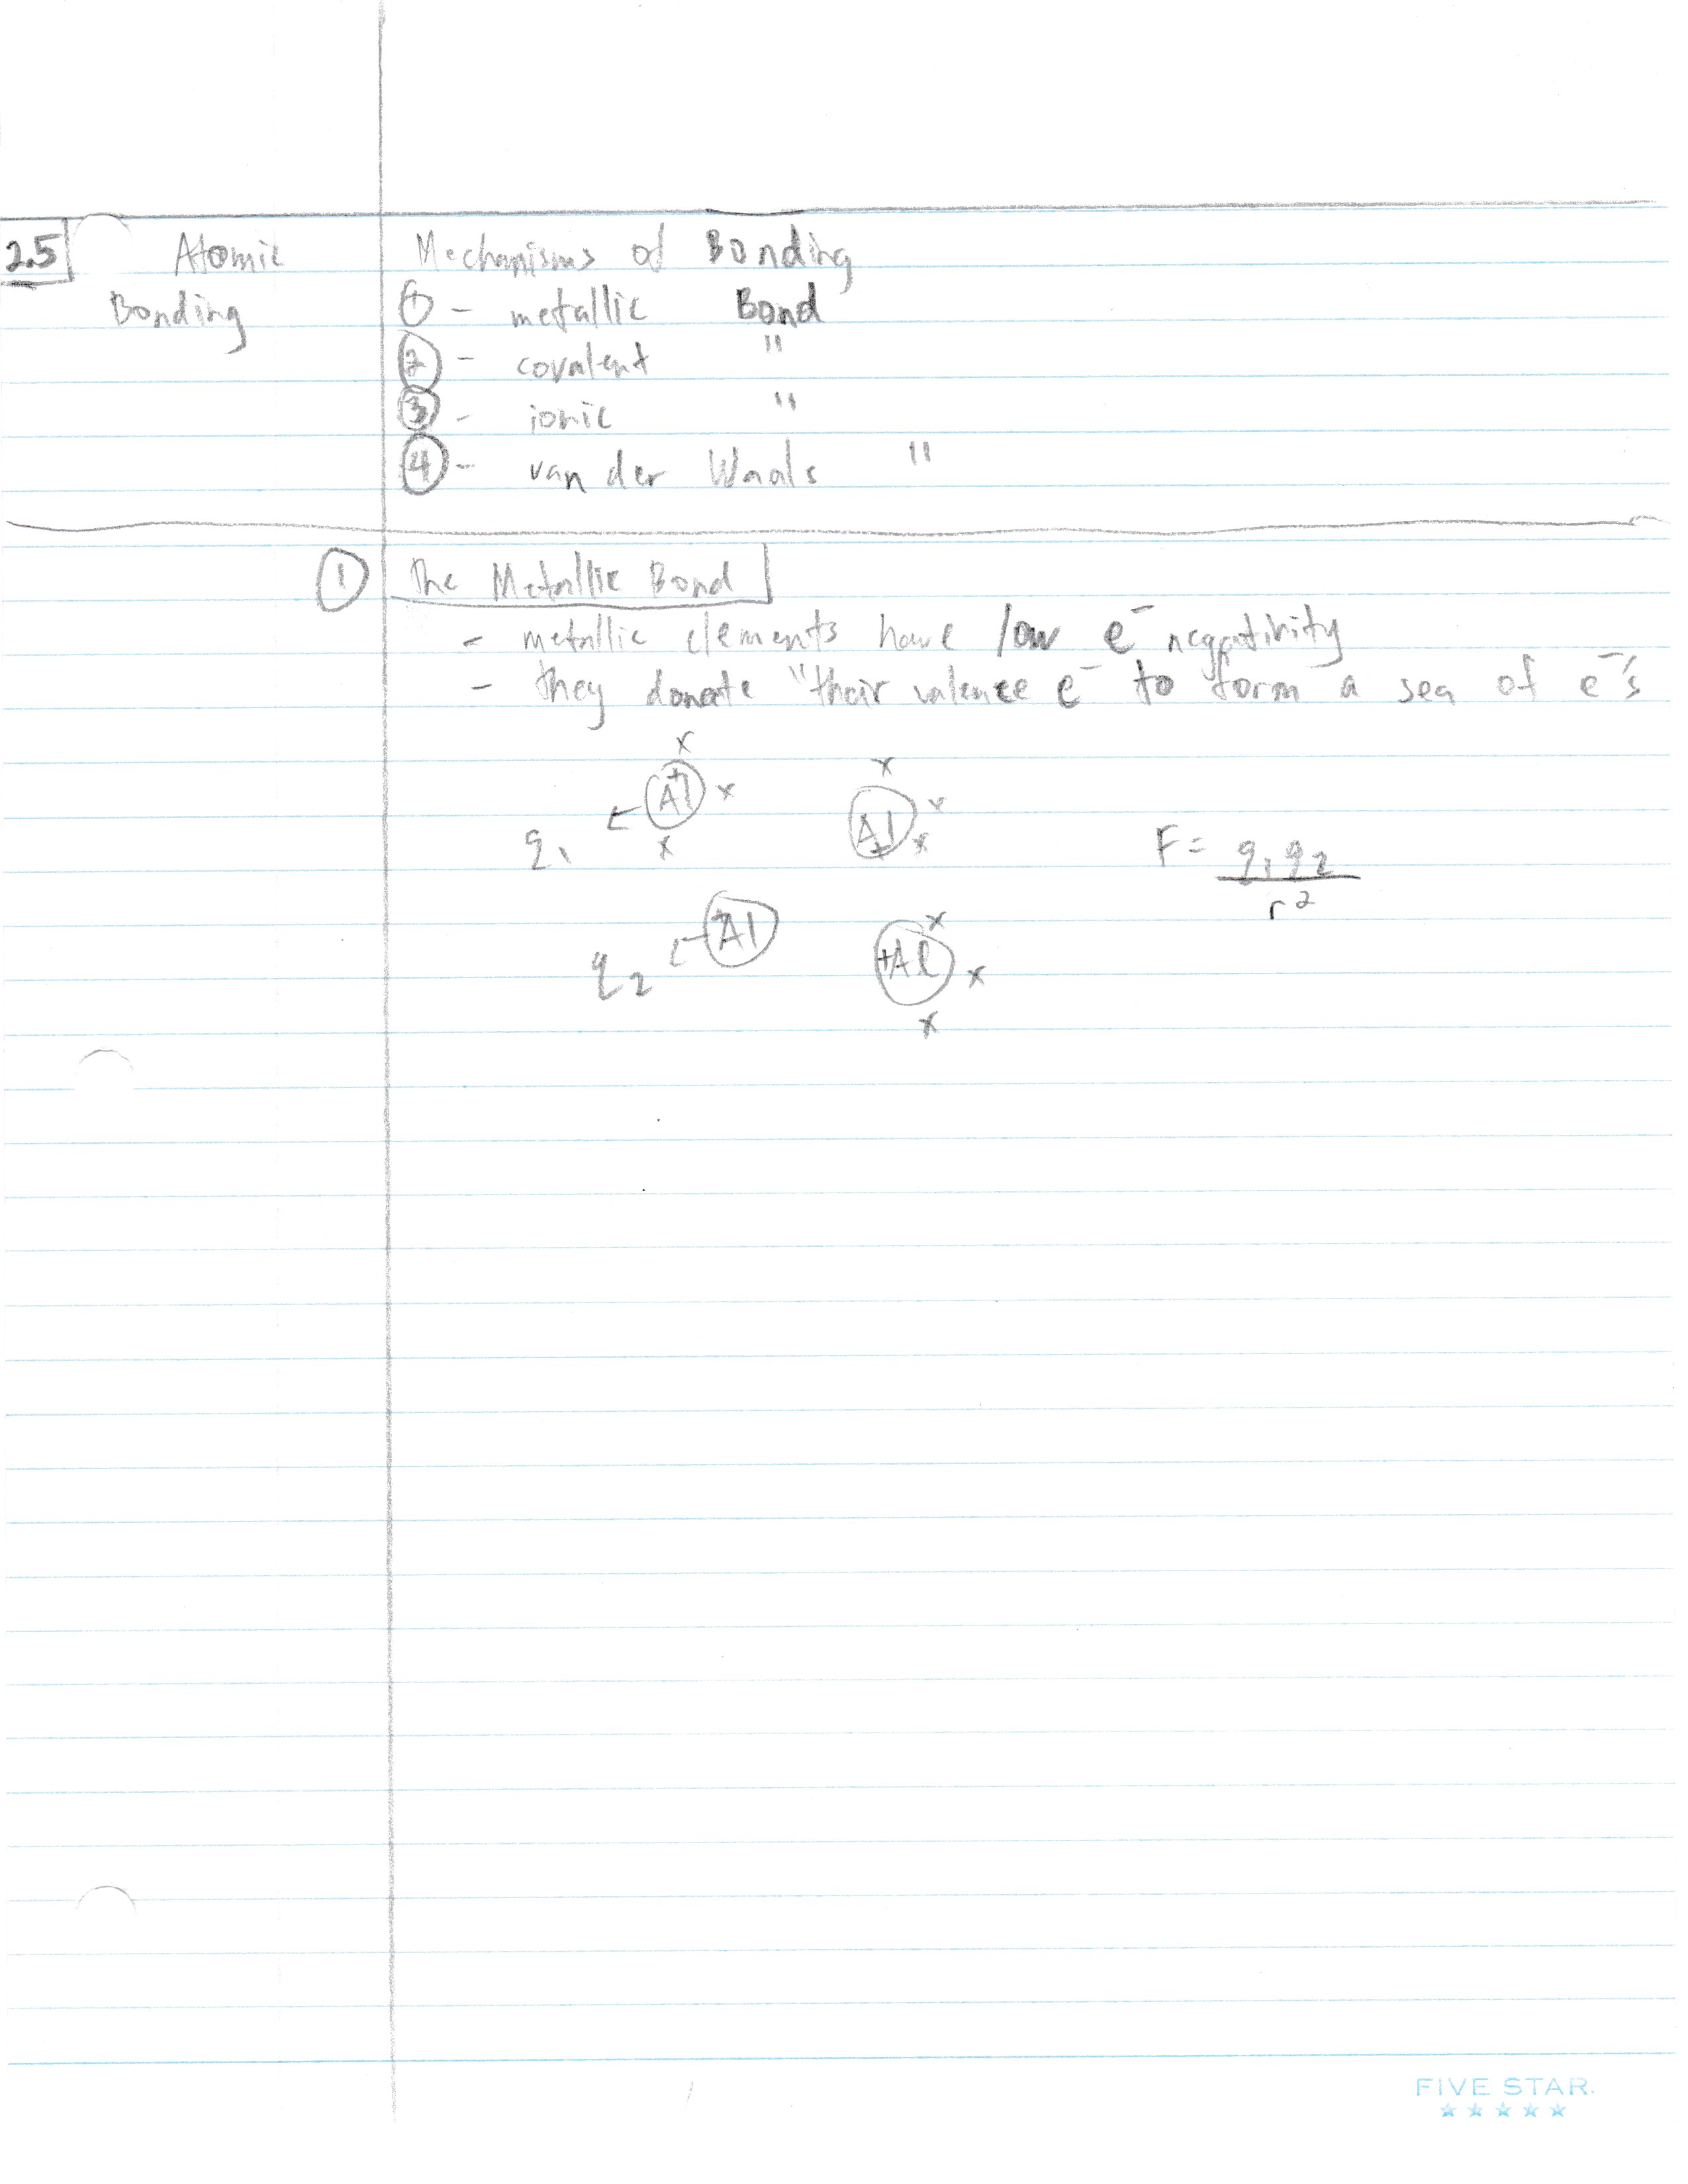 2.5 Atomic Bonding
Mechanisms of Bonding
① - metallic Bond
② - covalent "
③ - ionic "
④ - van der Waals "
① The Metallic Bond
- metallic elements have low e⁻ negativity
- they donate "their valence e⁻ to form a sea of e⁻'s
x
+
Al x
x
q₁
x
Al x
+ x
F = q₁q₂
r²
+Al
q₂
x
+Al x
x
FIVE STAR.
★★★★★